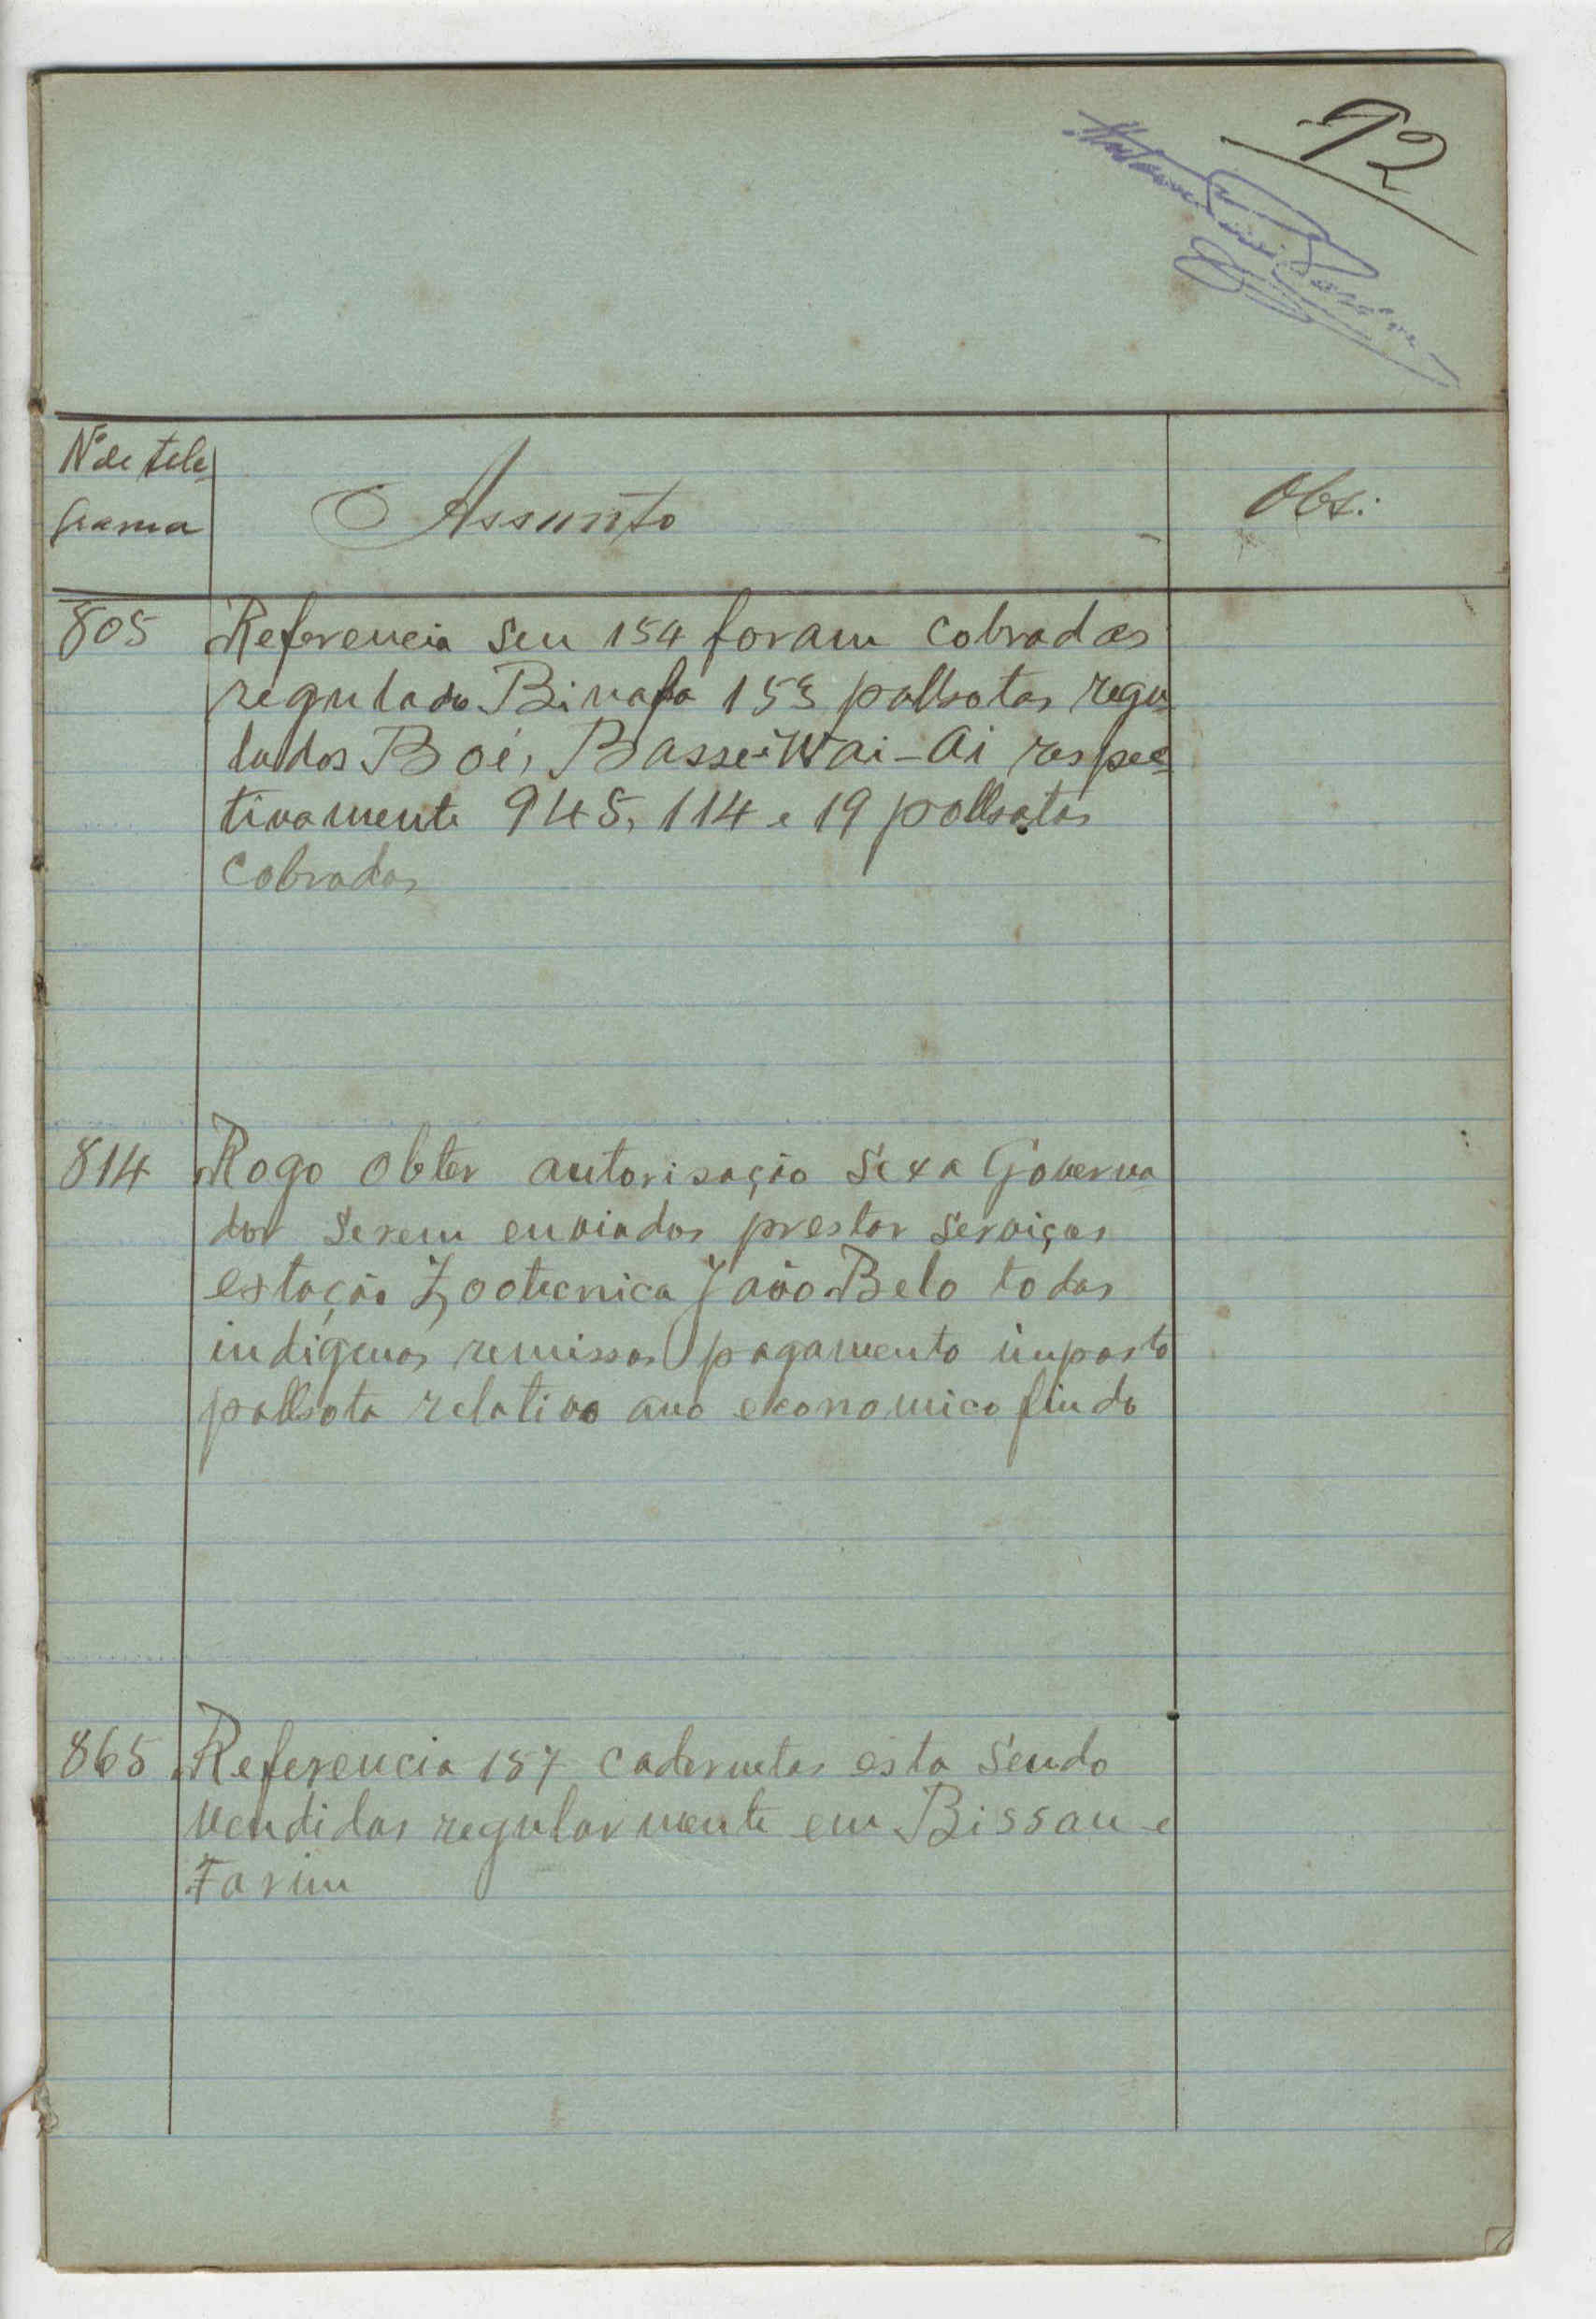 92
Nº de tele-
grama
Assunto
Obs:
805 Referencia seu 154 foram cobradas
regulado Binafa 153 palhotas regu-
lados Boé, Basse i Wai-Ai respec-
tivamente 945, 114 e 19 palhotas
cobradas
814 Rogo obter autorisação Sexa Governa-
dor serem enviados prestar serviços
estação Zootecnica João Belo todos
indigenas remissos pagamento imposto
palhota relativo ano economico findo
865 Referencia 157 cadernetas esta sendo
vendidas regularmente em Bissau e
Farim